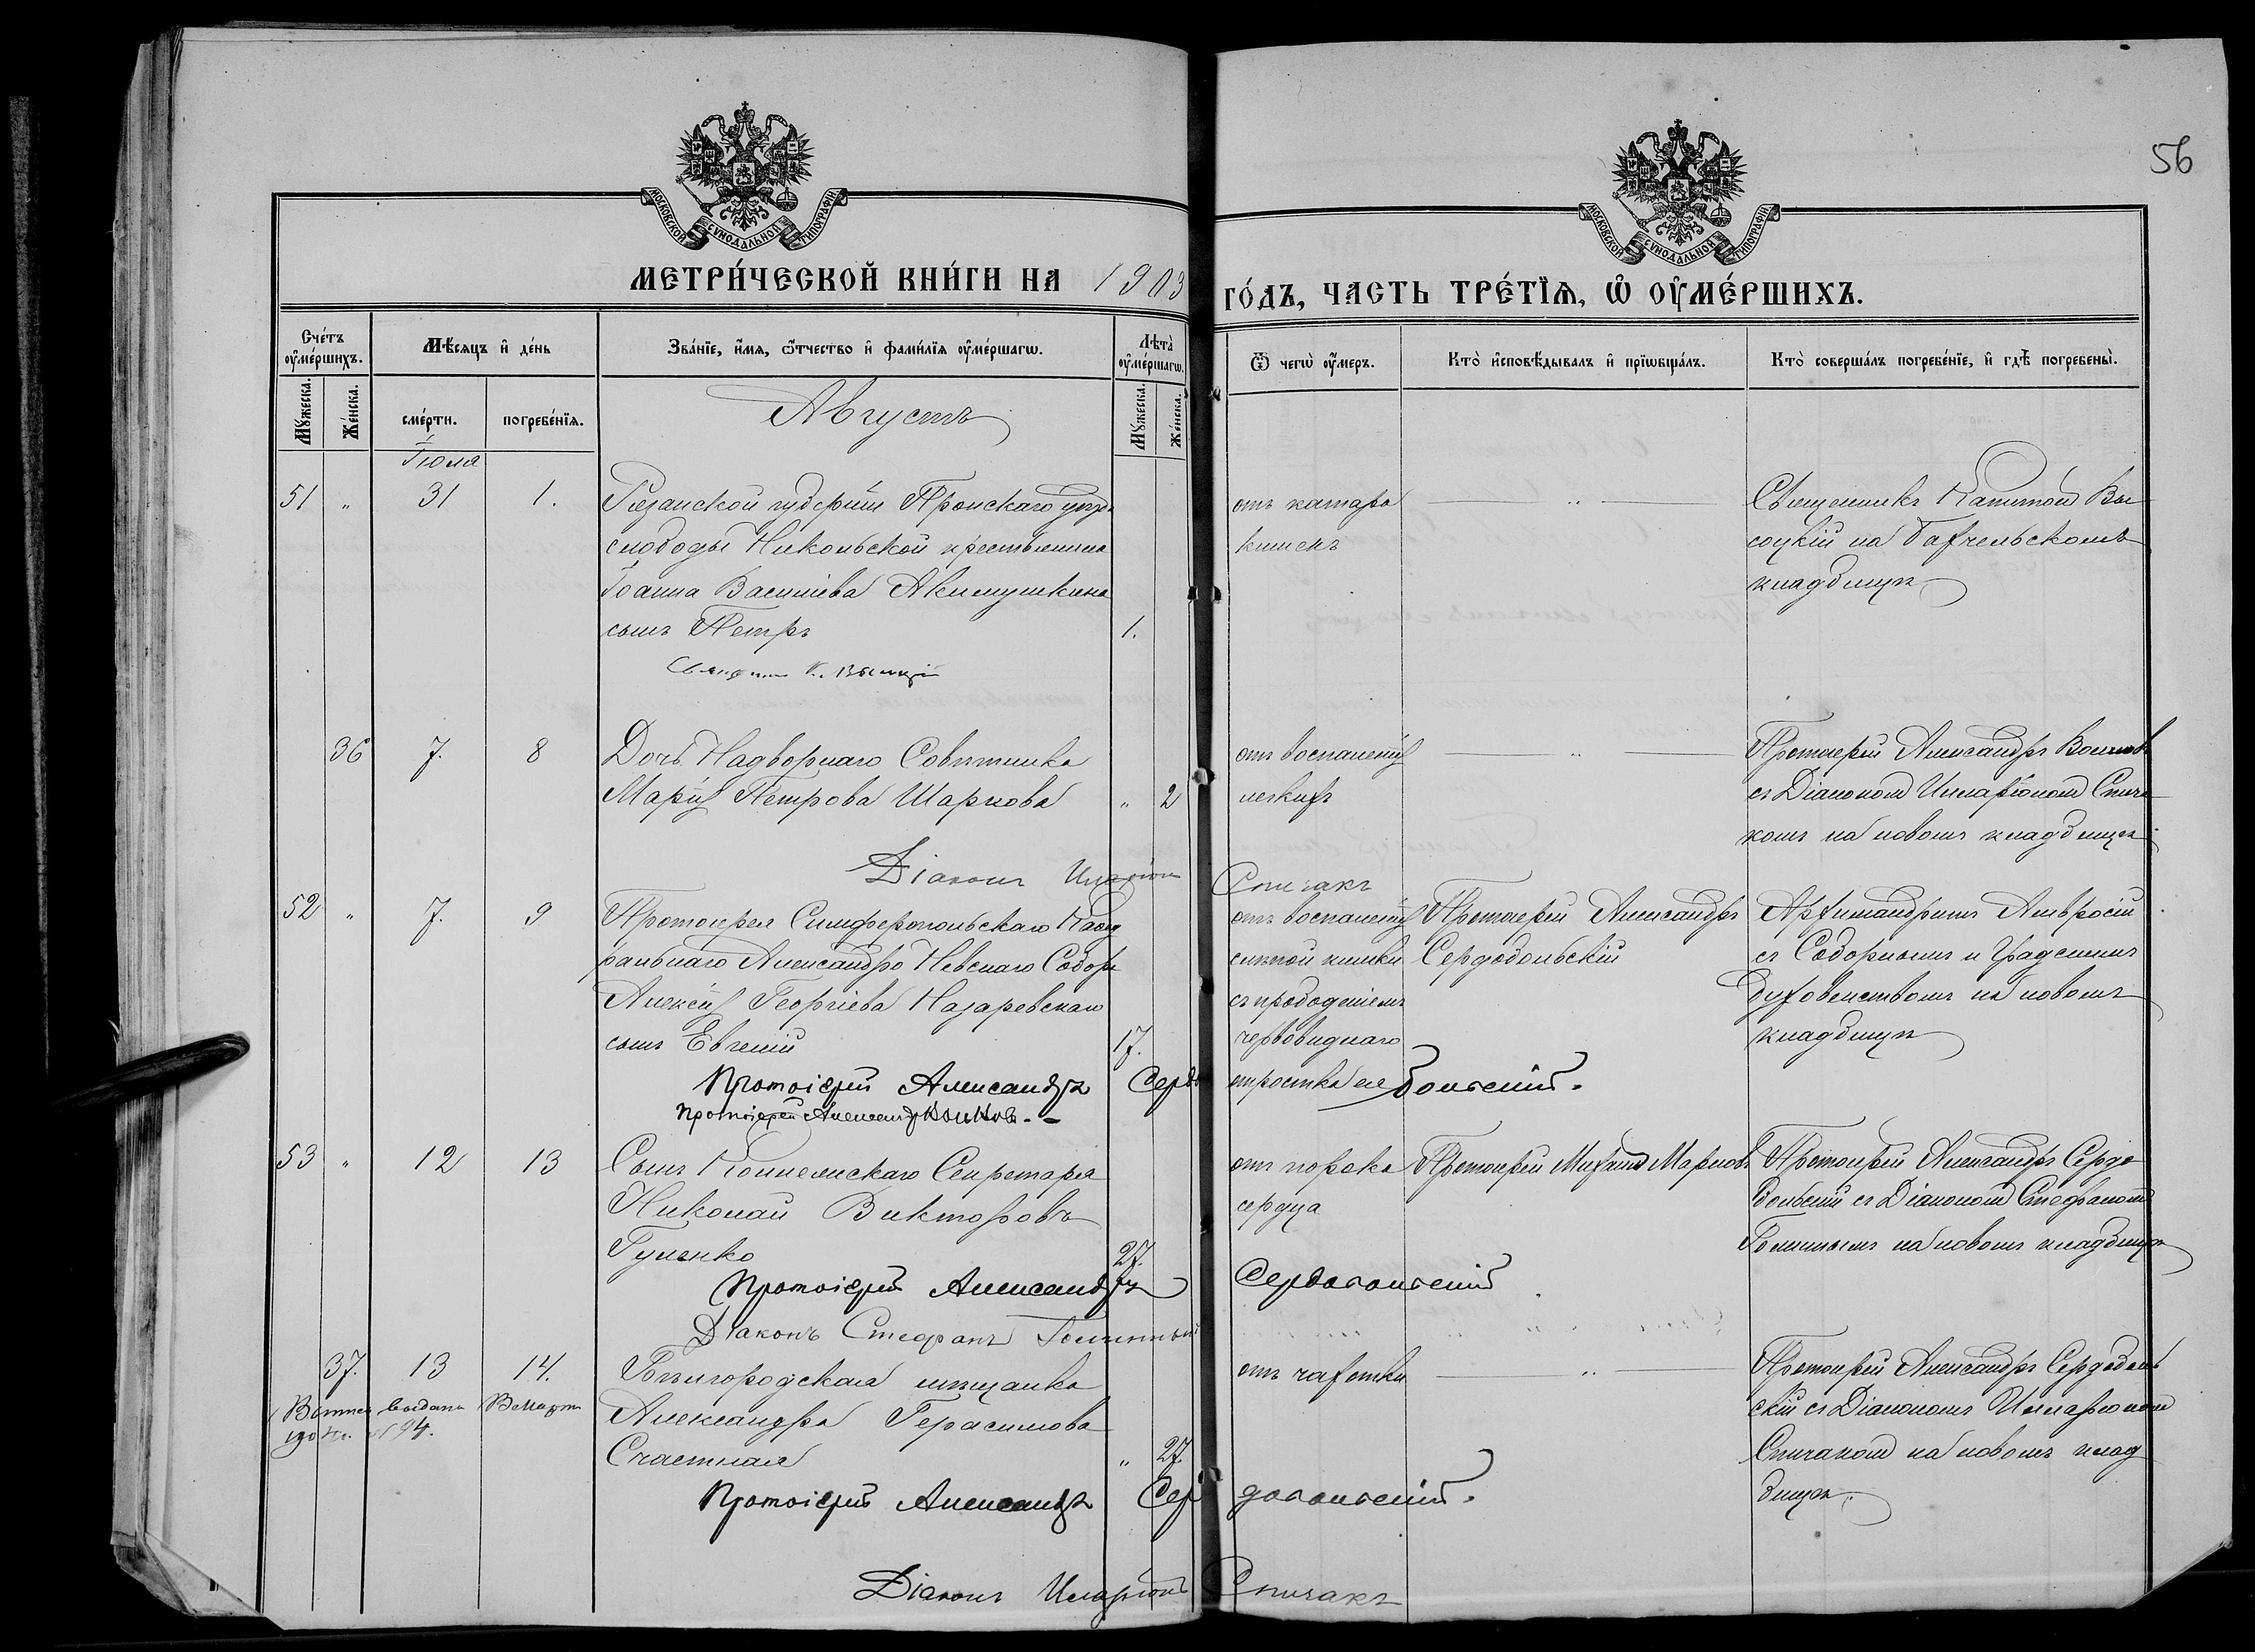 56
МОСКОВСКОЙ СѴНОДАЛЬНОЙ ТИПОГРАФІИ.
МОСКОВСКОЙ СѴНОДАЛЬНОЙ ТИПОГРАФІИ.
МЕТРИ́ЧЕСКОЙ КНИ́ГИ НА 1903 ГО́ДЪ, ЧАСТЬ ТРЕ́ТІѦ, Ѡ҆ ОУ҆МЕ́РШИХЪ.
Сче́тъ оу҆ме́ршихъ.
Мѣ́сѧцъ и҆ де́нь
Зва́нїе, и҆́мѧ, ѻ҆́тчество и҆ фами́лїѧ оу҆ме́ршагѡ.
Лѣ́та оу҆ме́ршагѡ.
Ѿ чегѡ̀ оу҆́меръ.
Кто̀ и҆сповѣ́дывалъ и҆ прїѡбща́лъ.
Кто̀ соверша́лъ погребе́нїе, и҆ гдѣ̀ погребены̀.
Мꙋ́жеска.
Же́нска.
сме́рти.
погребе́нїѧ.
Мꙋ́жеска.
Же́нска.
Августъ
Іюля
51 " 31 1.
Рязанской губерніи Пронскаго уѣзда
слободы Никольской крестьянина
Іоанна Василіева Акимушкина
сынъ Петръ 1.
отъ катара
кишекъ
Священникъ Капитонъ Вы
соцкій на Бахчельскомъ
кладбищѣ
Священникъ К. Высоцкій
36 7. 8
Дочь Надворнаго Совѣтника
Марія Петрова Шаркова " 2
отъ воспаленія
легкихъ
Протоіерей Александръ Волковъ
съ Діакономъ Иларіономъ Спича
комъ на новомъ кладбищѣ
Діаконъ Иларіонъ Спичакъ
52 " 7. 9
Протоіерея Симферопольскаго Каѳед
ральнаго Александро Невскаго Собора
Алексія Георгіева Назаревскаго
сынъ Евгеній 17.
отъ воспаленія
слѣпой кишки
съ прободеніемъ
червовиднаго
отростка ея
Протоіерей Александръ
Сердобольскій
Архимандритъ Амвросій
съ Соборнымъ и Градскимъ
духовенствомъ на новомъ
кладбищѣ
Протоіерей Александръ Сердобольскій.
Протоіерей Александръ Волковъ.
53 " 12 13
Сынъ Коллежскаго Секретаря
Николай Викторовъ
Гуленко 27.
отъ порока
сердца
Протоіерей Михаилъ Марковъ
Протоіерей Александръ Сердо
больскій съ Діакономъ Стефаномъ
Голиннымъ на новомъ кладбищѣ
Протоіерей Александръ Сердобольскій
Діаконъ Стефанъ
37. 13 14.
Бѣлгородская мѣщанка
Александра Герасимова
Счастная " 27.
отъ чахотки
Протоіерей Александръ Сердоболь
скій съ Діакономъ Иларіономъ
Спичакомъ на новомъ клад
бищѣ.
выдана Марта
№ 94.
Протоіерей Александръ Сердобольскій.
Діаконъ Иларіонъ Спичакъ